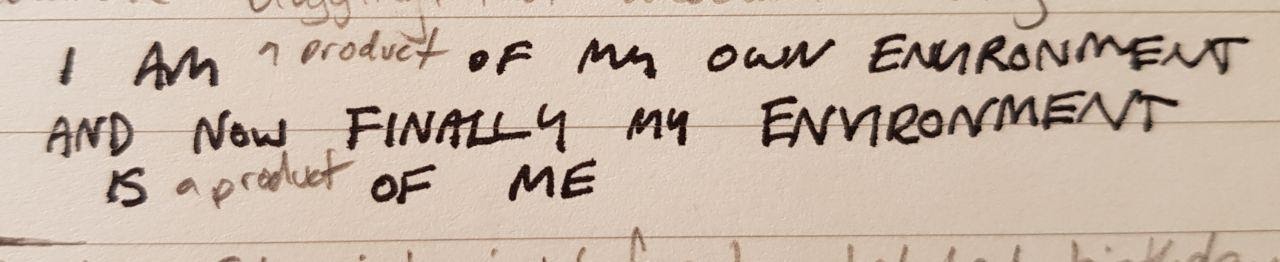 I AM a product OF MY OWN ENVIRONMENT
AND NOW FINALLY MY ENVIRONMENT
IS a product OF ME